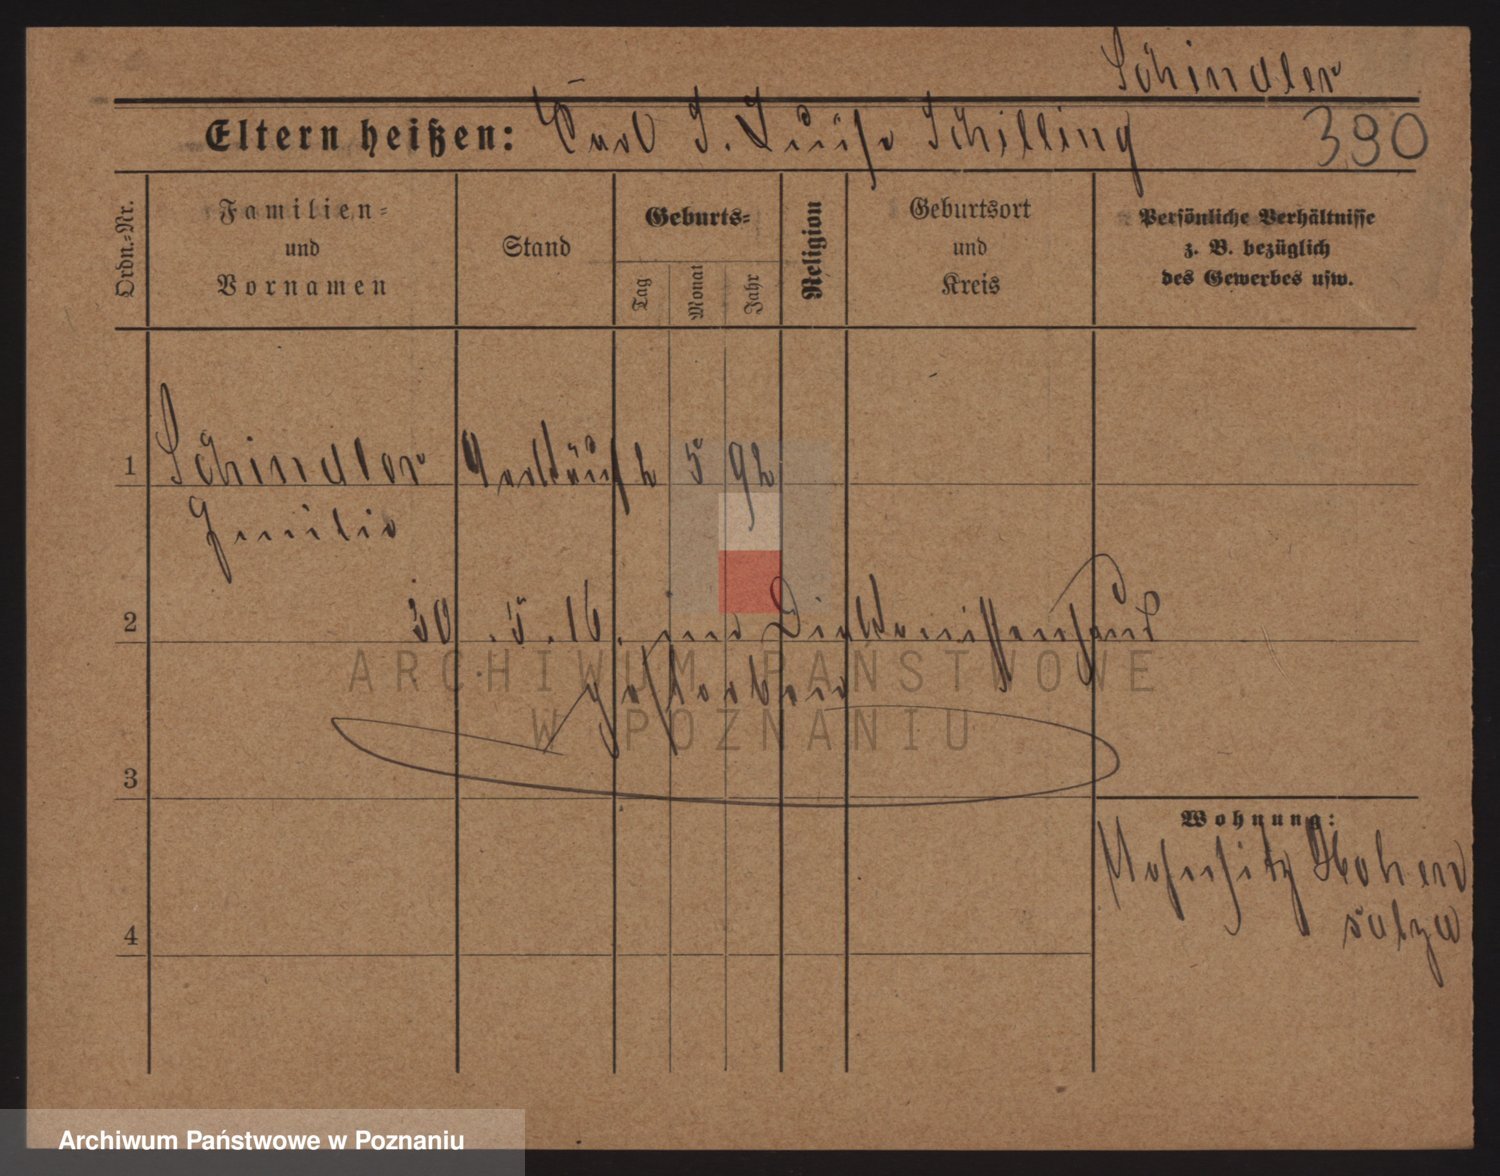 Schindler
Eltern heißen: Carl u. Luise Schilling 390
Ordn.-Nr.
Familien-
und
Vornamen
Stand
Geburts-
Tag
Monat
Jahr
Religion
Geburtsort
und
Kreis
Persönliche Verhältnisse
z. B. bezüglich
des Gewerbes usw.
1 Schindler 2 5 92
Emilie
2 30.5.16. im Diakonissenhaus
gestorben
3
Wohnung:
Wohnsitz Hohen
salza
4
ARCHIWUM PAŃSTWOWE
W POZNANIU
Archiwum Państwowe w Poznaniu